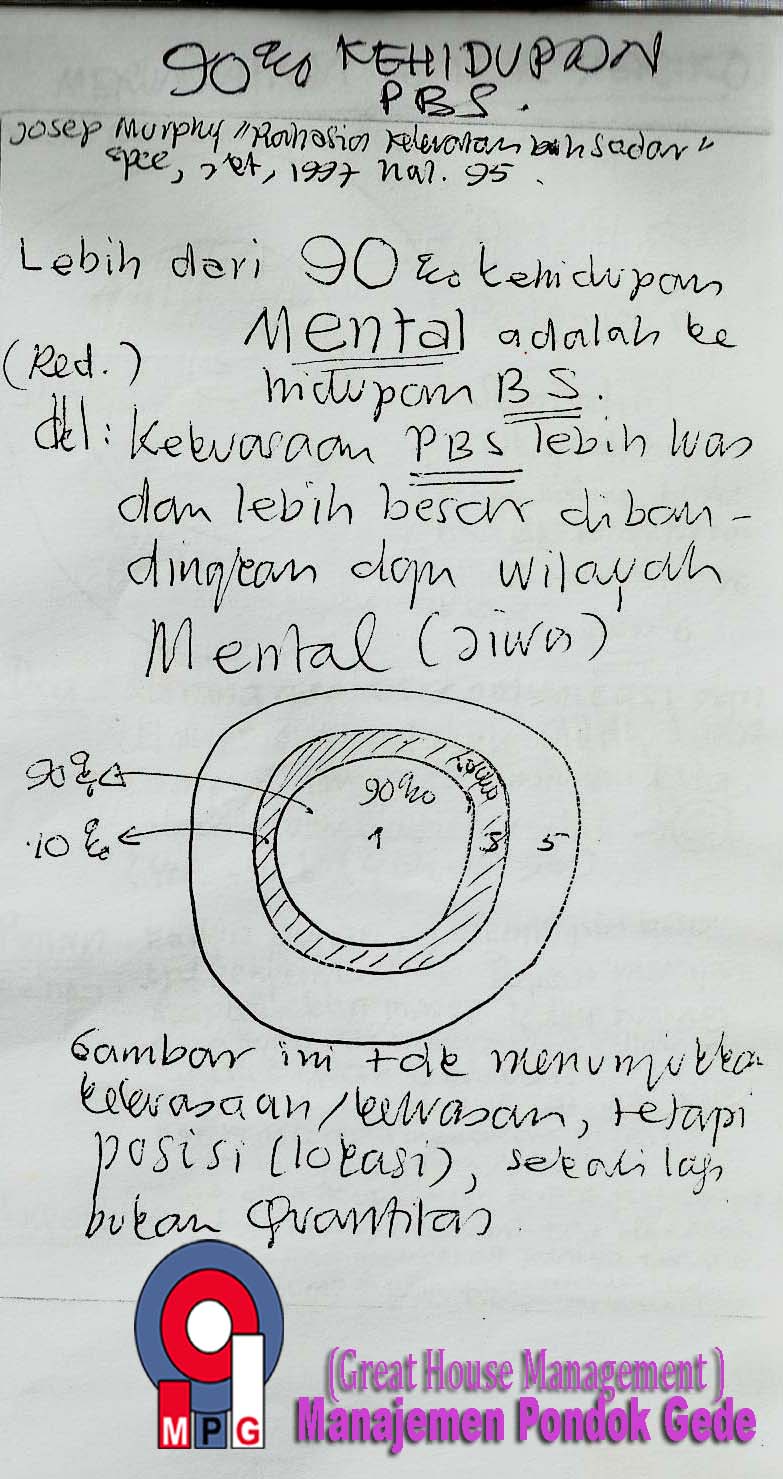 90% KEHIDUPAN
PBS.
Josep Murphy "Rahasia Kekuatan bwh sadar"
cet, 1997 hal. 95.
Lebih dari 90% kehidupan
Mental adalah ke
(Red.) hidupan BS.
ddl: Kekuasaan PBS lebih luas
dan lebih besar diban-
dingkan dgn wilayah
Mental (Jiwa)
90%
90%
10%
1
5
Gambar ini tdk menunjukkan
kekuasaan/kekuasan, tetapi
posisi (lokasi), sekali lagi
bukan Quantitas.
MPG
(Great House Management)
Manajemen Pondok Gede